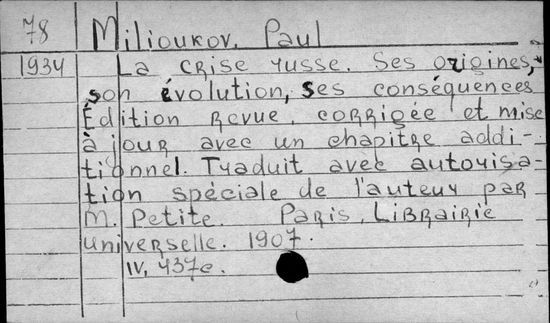 78
Milioukov, Paul
1934
La crise russe. Ses origines,
son évolution, ses conséquences
Édition revue, corrigée et mise
à jour avec un chapitre addi-
tionnel. Traduit avec autorisa-
tion spéciale de l'auteur par
M. Petite. Paris, Librairie
universelle. 1907.
IV, 437c.